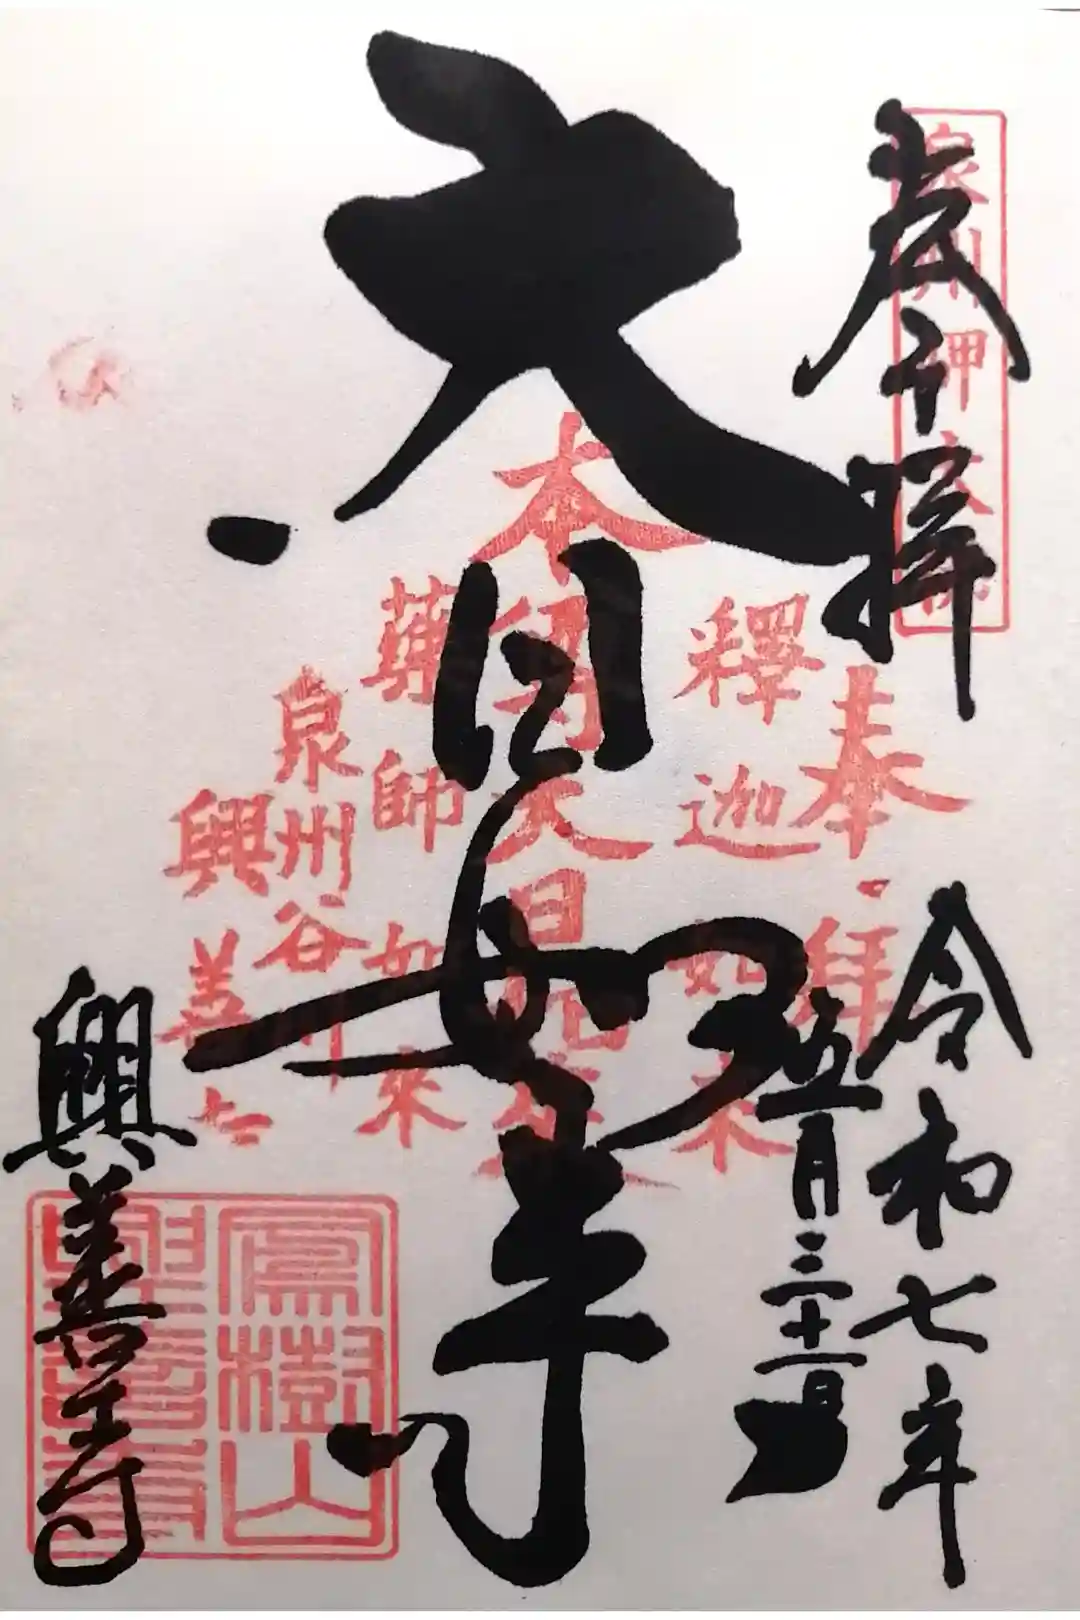 奉拝
令和七年
五月三十一日
大日如来
興善寺
奉拝
釋迦如来
本尊大日如来
藥師如來
泉州谷川
興善寺
鳳樹山
興善寺